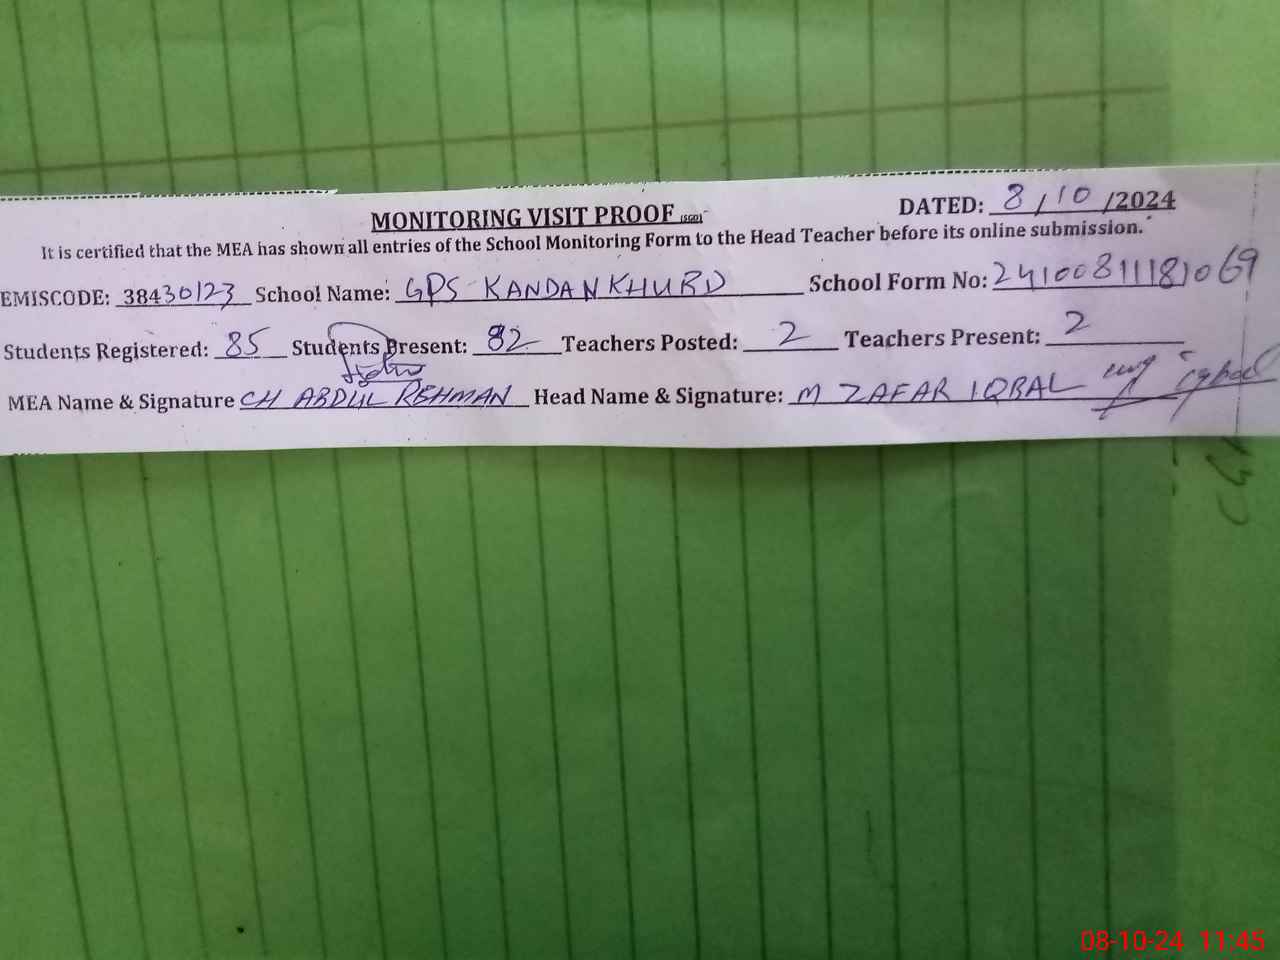 MONITORING VISIT PROOF (SGD) DATED: 8/10/2024
It is certified that the MEA has shown all entries of the School Monitoring Form to the Head Teacher before its online submission.
EMISCODE: 38430123 School Name: GPS KANDAN KHURD School Form No: 24100811181069
Students Registered: 85 Students Present: 82 Teachers Posted: 2 Teachers Present: 2
MEA Name & Signature CH ABDUL REHMAN Head Name & Signature: M ZAFAR IQBAL
08-10-24 11:45